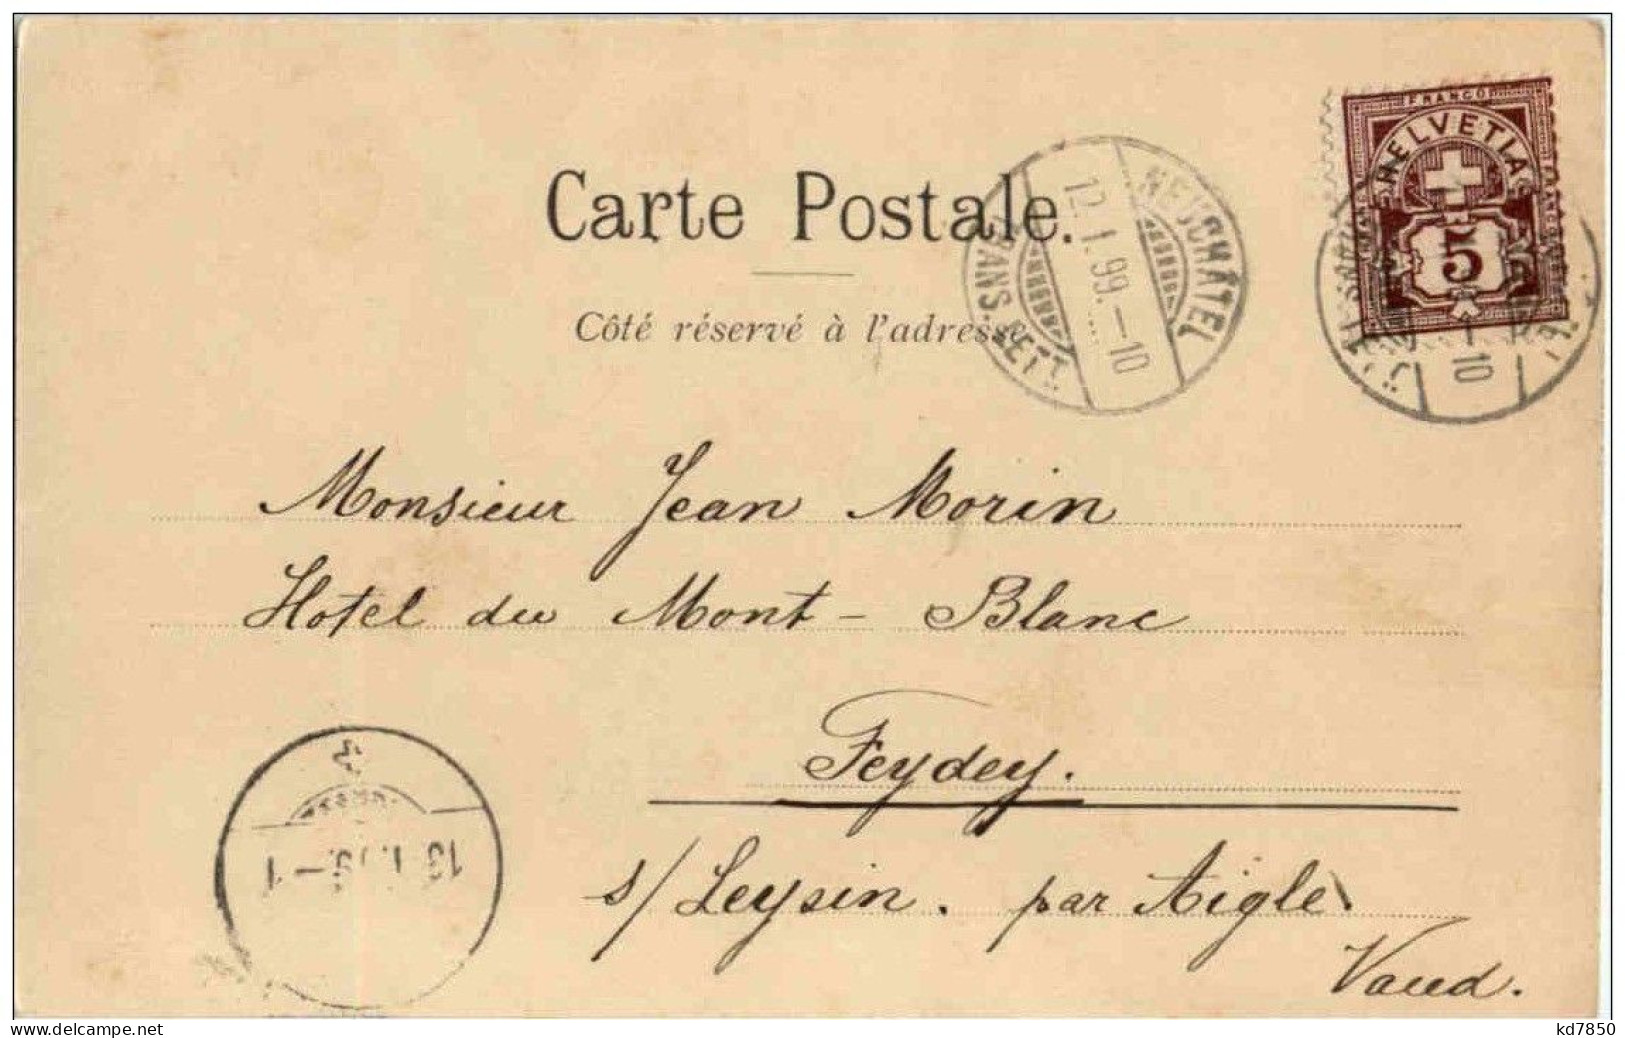 FRANCO
HELVETIA
5
Carte Postale.
NEUCHÂTEL
12. I. 99. — 10
TRANS. LETT.
10
Côté réservé à l'adresse
Monsieur Jean Morin
Hotel du Mont - Blanc
Feydey.
s/ Leysin. par Aigle
Vaud.
delcampe.net
kd7850